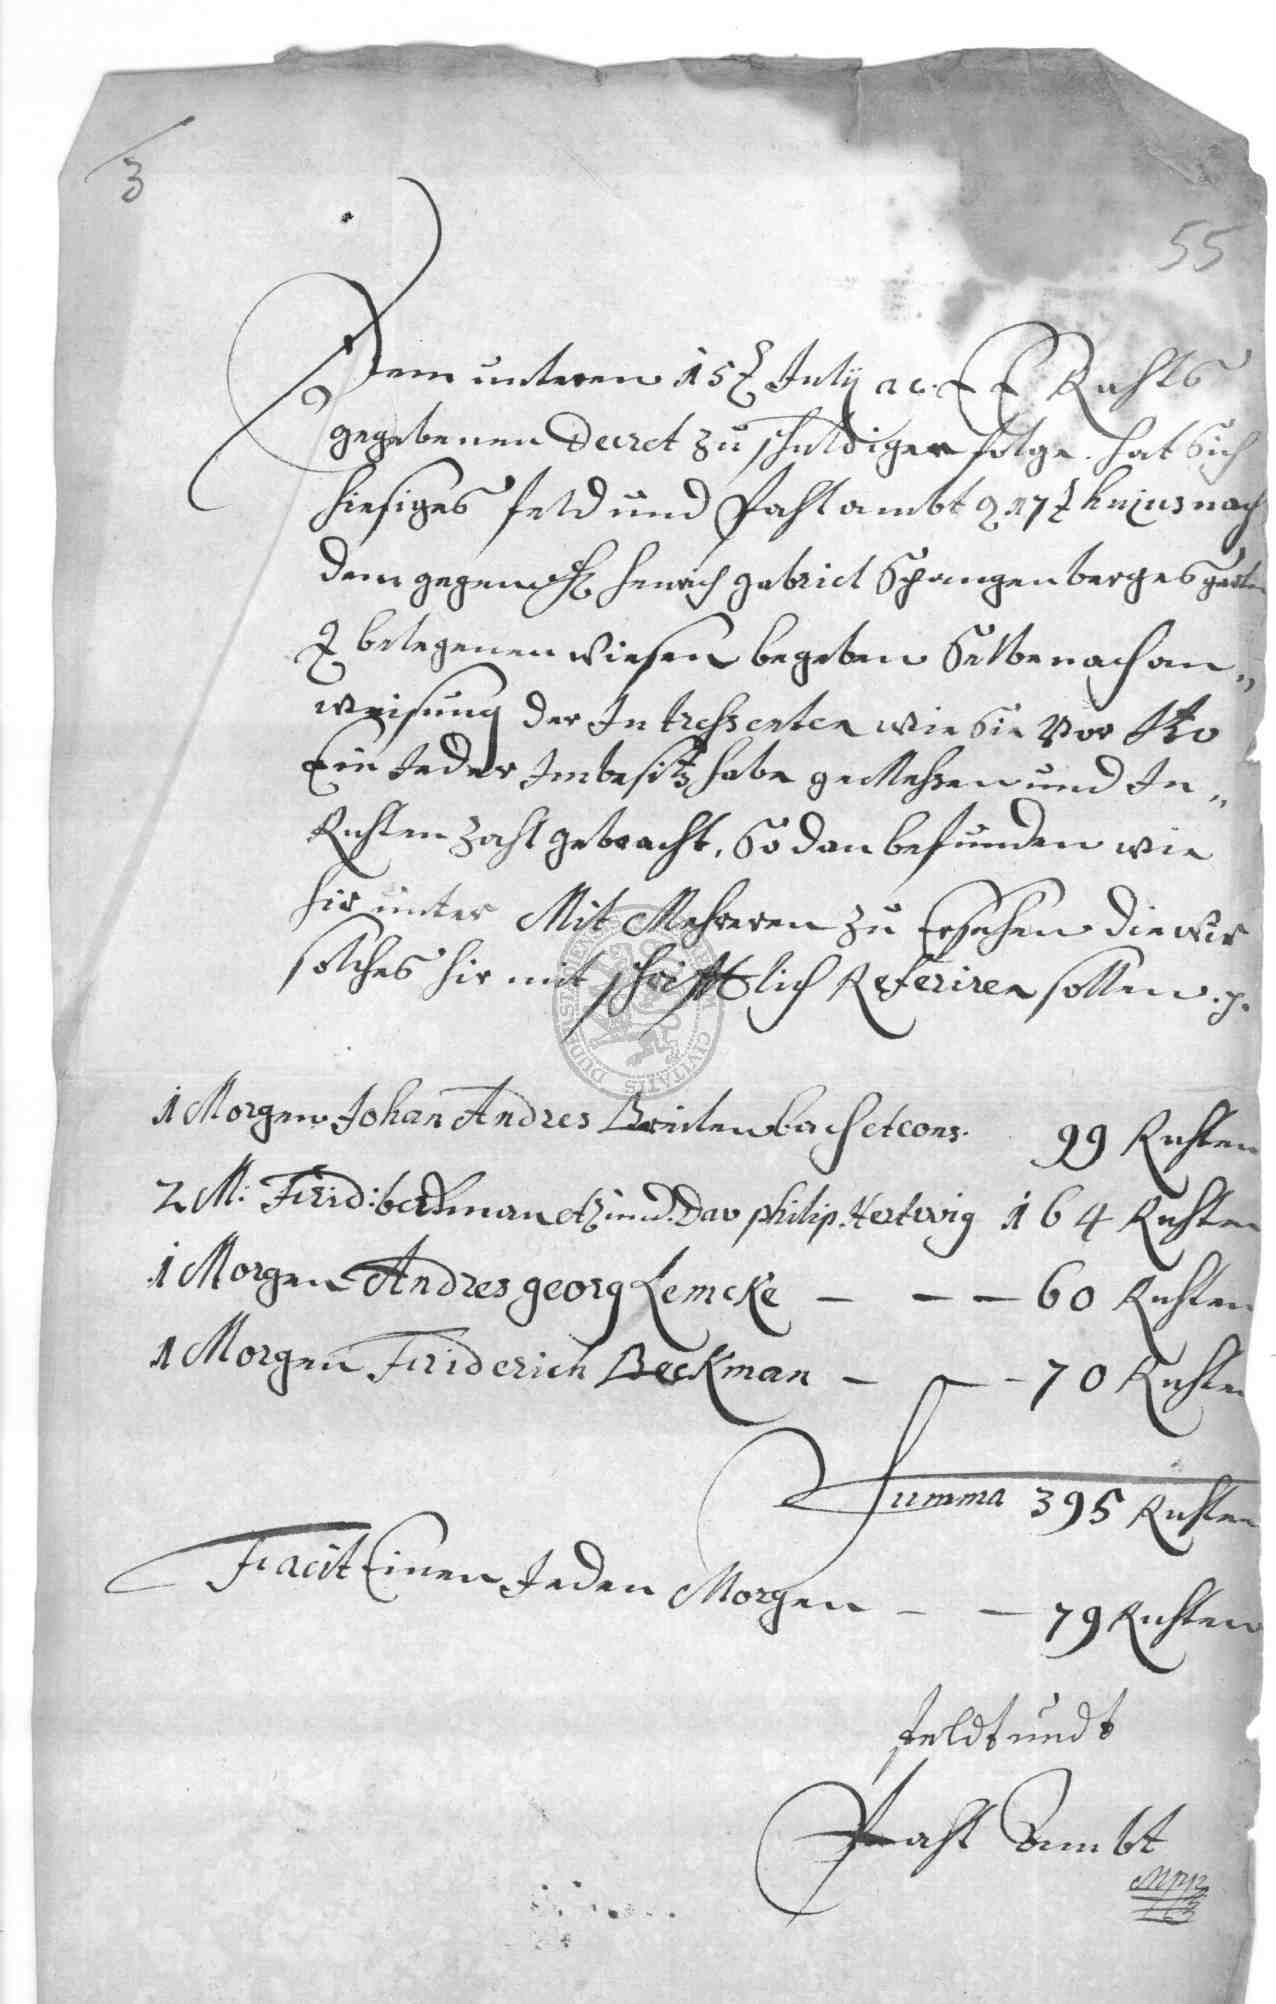 3
55
Dem unteren 15ᵗ July a c. E E Rahts
gegebenen Decret zu schuldiger folge. hat sich
hiesiges feld und Pahl ambt d 17ᵗ hujus nach
dem gegen H henrich gabriel Spangenberges garten
belegenen wiesen begeben Selbe nach an„
weisung der Intressenten wie sie vor Itzo
Ein Jeder Im besitz habe gemessen und In„
Ruhten zahl gebracht, So dan befunden wie
hir unter Mit Mehreren zu Ersehen die wir
solches hir mit schrifftlich Referiren sollen. p.
1 Morgen Johan Andres Breitenbach et cons. 99 Ruhten
2 M: Frid: beckman und Dav philip Hertwig 164 Ruhten
1 Morgen Andres georg Lemcke — — — 60 Ruhten
1 Morgen Friderich Beckman — — - 70 Ruhten
Summa 395 Ruhten
Facit Einen Jeden Morgen — — 79 Ruhten
feldt undt
Pahl Ambt
Mpp